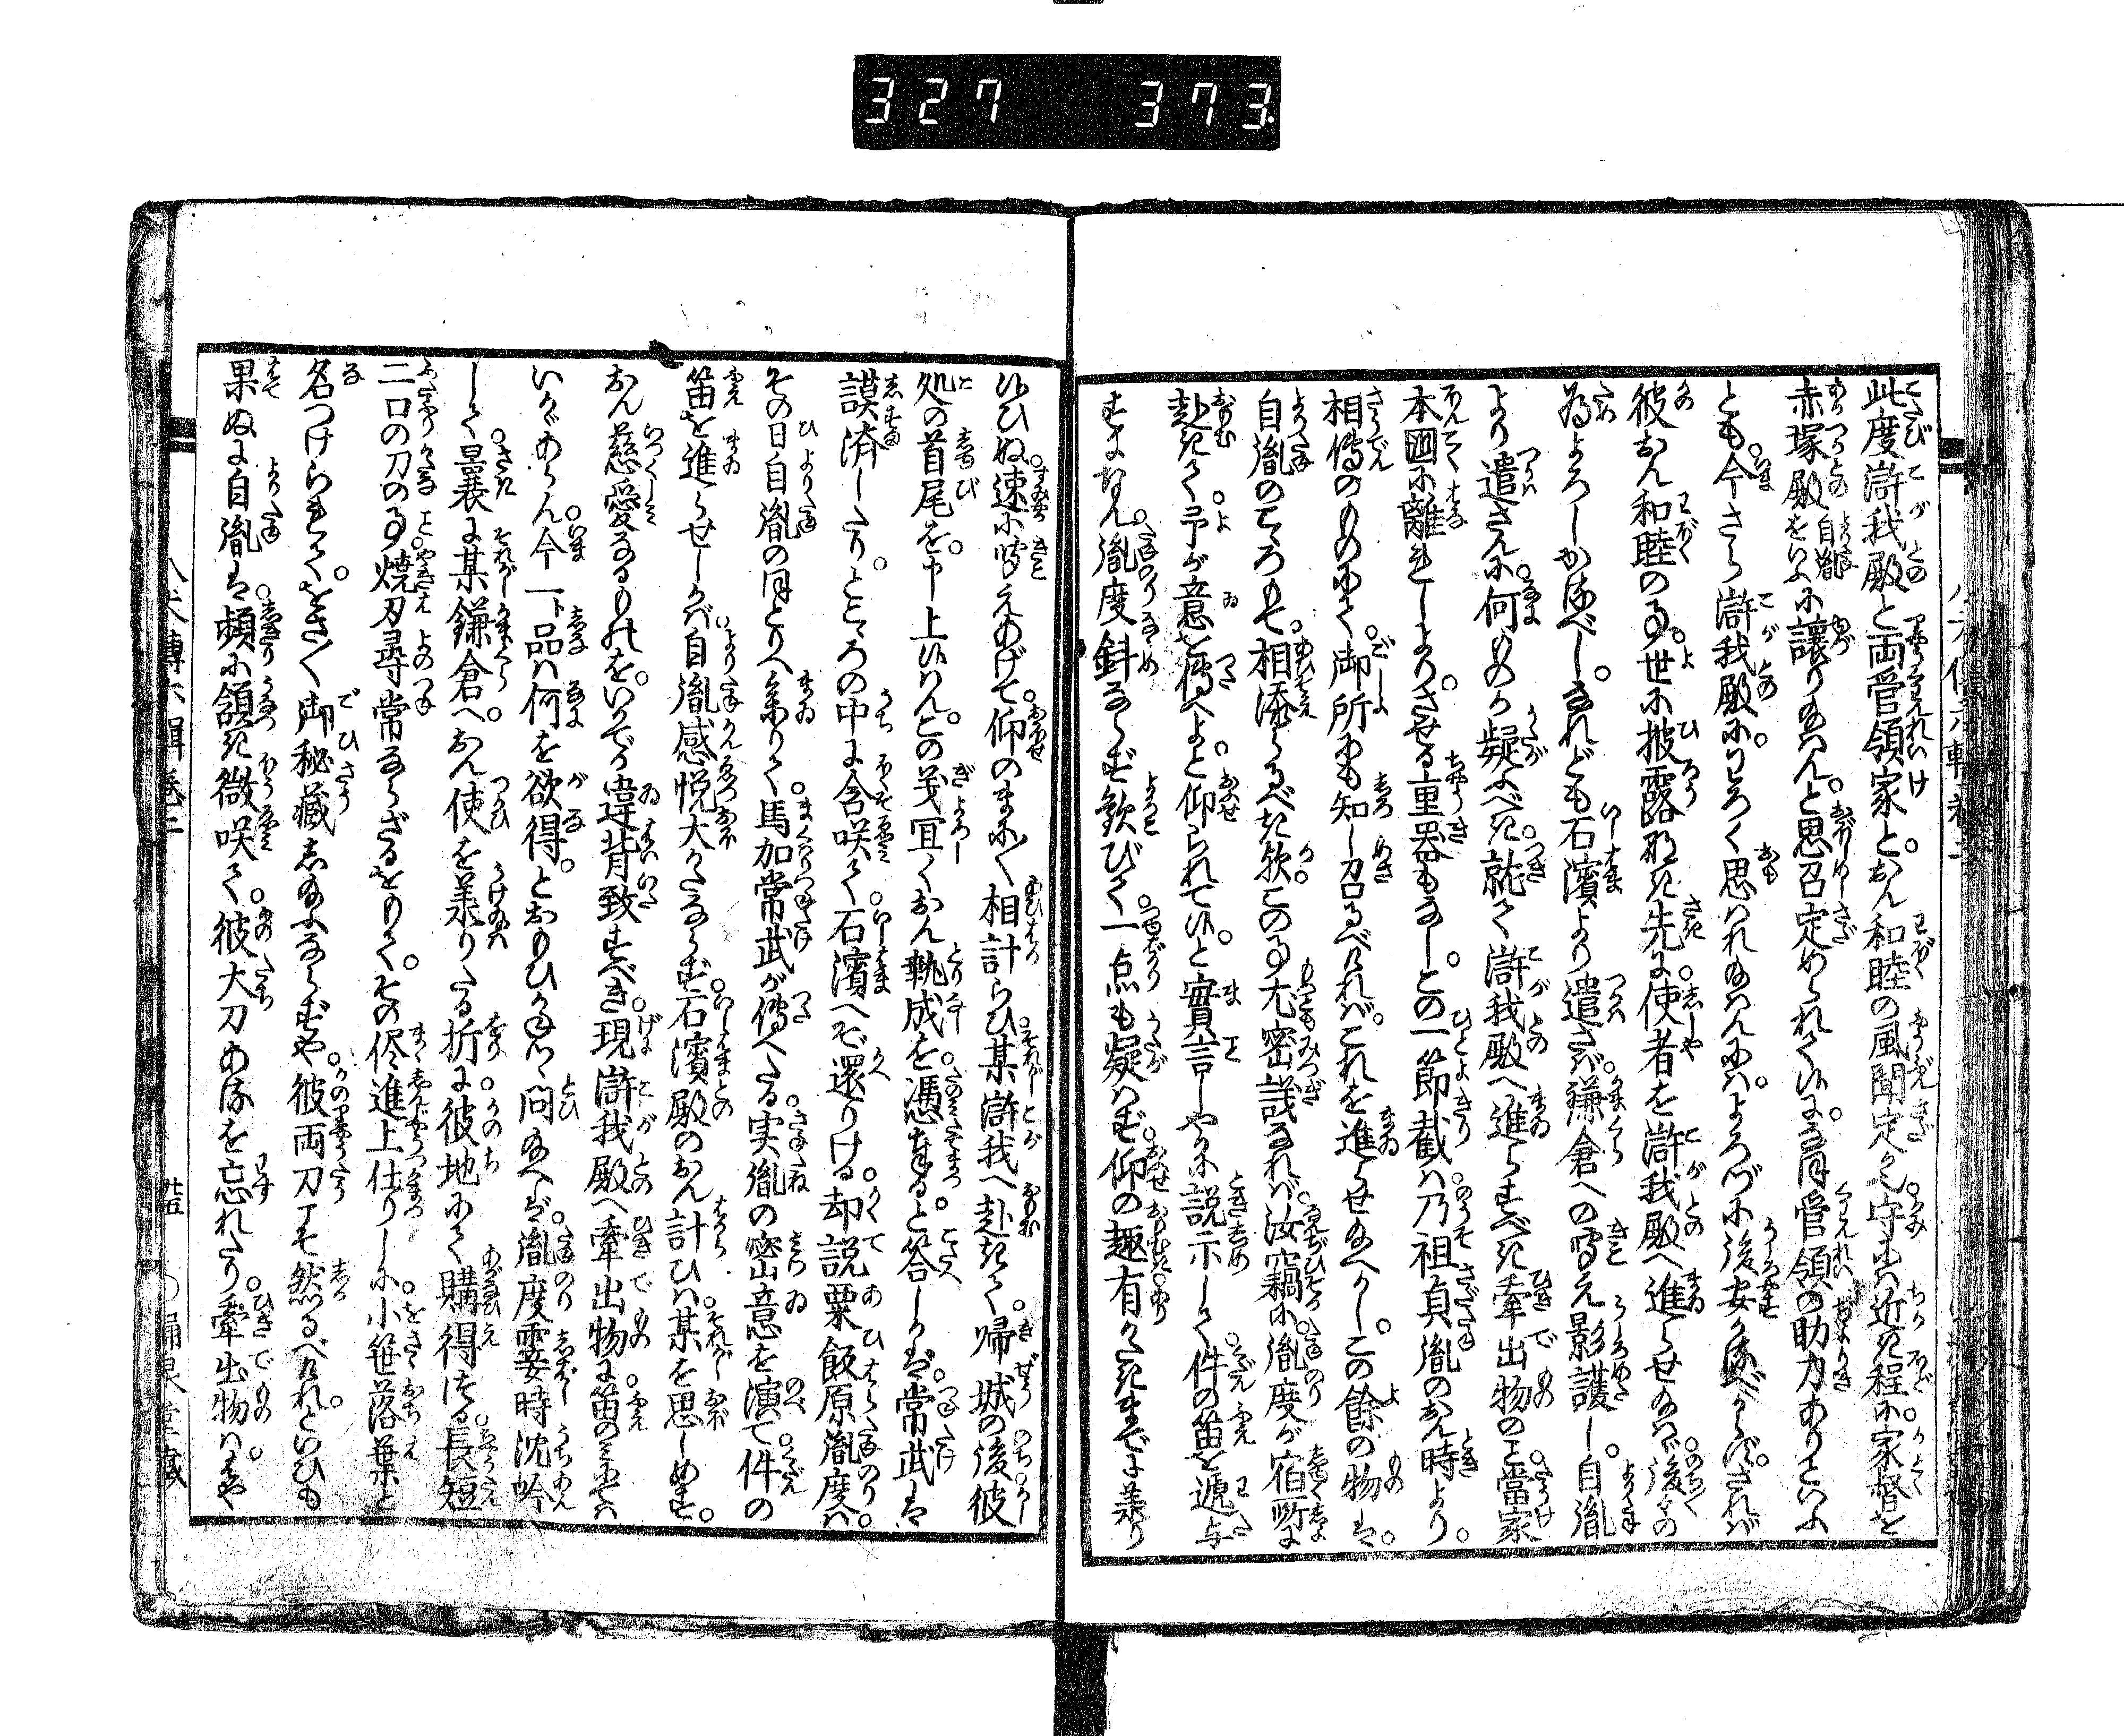 327 373
此度滸我殿と両管領家と。おん和睦の風聞定かに。守は近き程に家督を
赤塚殿自胤をいふに譲り給はんと思召定められて候に。なほ管領の助力ありといふ
とも。今さら滸我殿に。わろく思はれ給はんには。よろづに後安かるべからず。されば
彼おん和睦の事。世に披露なき先に。使者を滸我殿へ進らせ給はゞ後々の
為よろしかるべし。なれども石濱より遣さば。鎌倉への聞え影護し。自胤
より遣さんに。何ものか疑ふべき。就て滸我殿へ進らすべき牽出物の事。當家
本國に離れしより。させる重器もなし。この一節截は。乃祖貞胤のおん時より。
相傳のものにて。御所にも知し召るべければ。これを進らせ給へかし。この餘の物は。
自胤のこゝろもて。相添らるべき欤。この事尤密議なれば。汝竊に胤度が宿所に
赴きて。予が意を傳へよ。と仰られて候。と實言しやかに説示して。件の笛を遞与
すになん。胤度斜ならず歓びて。一点も疑はず。仰の趣有がたきまでに美り
候ひぬ。速に聞えあげて。仰のまに〳〵相計らひ。某滸我へ赴きて。帰城の後彼
処の首尾を。申上候はん。この義宜くおん執成を。憑奉る。と答しかば。常武は
謨済したり。とこゝろの中に含咲て。石濱へぞ還りける。却説粟飯原胤度は。
その日自胤のほとりへ參りて。馬加常武が傳へたる。実胤の密意を演て。件の
笛を進らせしかば。自胤感悦大かたならず。石濱殿のおん計ひは。某を思しめす。
おん慈愛なるものを。いかでか違背致すべき。現滸我殿へ牽出物に。笛のみにては
いかゞあらん。今一品は何を欲得。とおもひかねつゝ問給へば。胤度霎時沈吟
しく。曩に某鎌倉へ。おん使を美りたる折に。彼地にて購得たる。長短
二口の刀の事。焼刃尋常ならざるをもて。その侭進上仕りしに。小笹落葉と
名つけられて。をさ〳〵御秘藏し給ふならずや。彼両刀こそ然るべけれ。といひも
果ぬに自胤は。頻に領き微咲て。彼大刀あるを忘れたり。牽出物は。はや